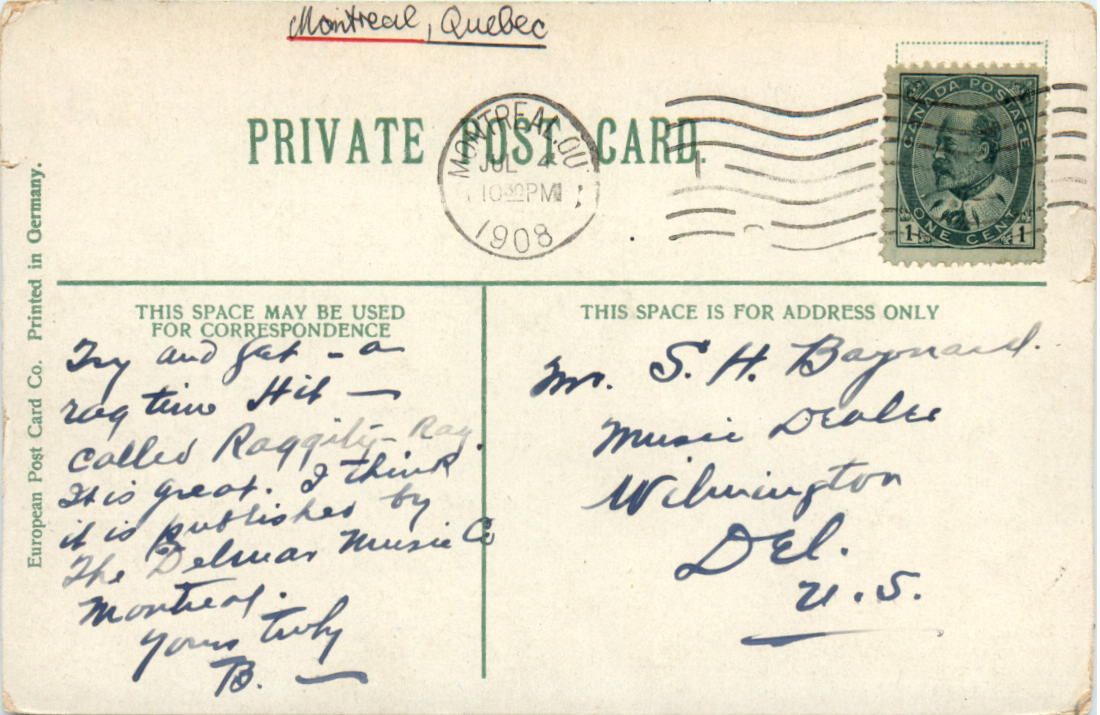 Montreal, Quebec
PRIVATE POST CARD.
MONTREAL.QU
JUL 4
10 30 PM
1908
CANADA POSTAGE
1 ONE CENT 1
European Post Card Co. Printed in Germany.
THIS SPACE MAY BE USED
FOR CORRESPONDENCE
Try and get - a
rag time Hit -
called Raggity-Rag.
It is great. I think
it is published by
The Delmar Music Co
Montreal.
Yours truly
B. -
THIS SPACE IS FOR ADDRESS ONLY
Mr. S. H. Baynard.
Music Dealer
Wilmington
Del.
U.S.